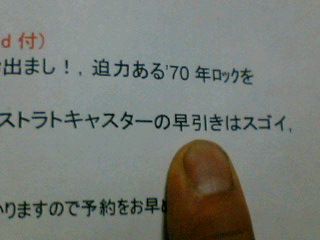 d 付）
出まし！，迫力ある'70 年ﾛｯｸを
ストラトキャスターの早引きはスゴイ，
りますので予約をお早